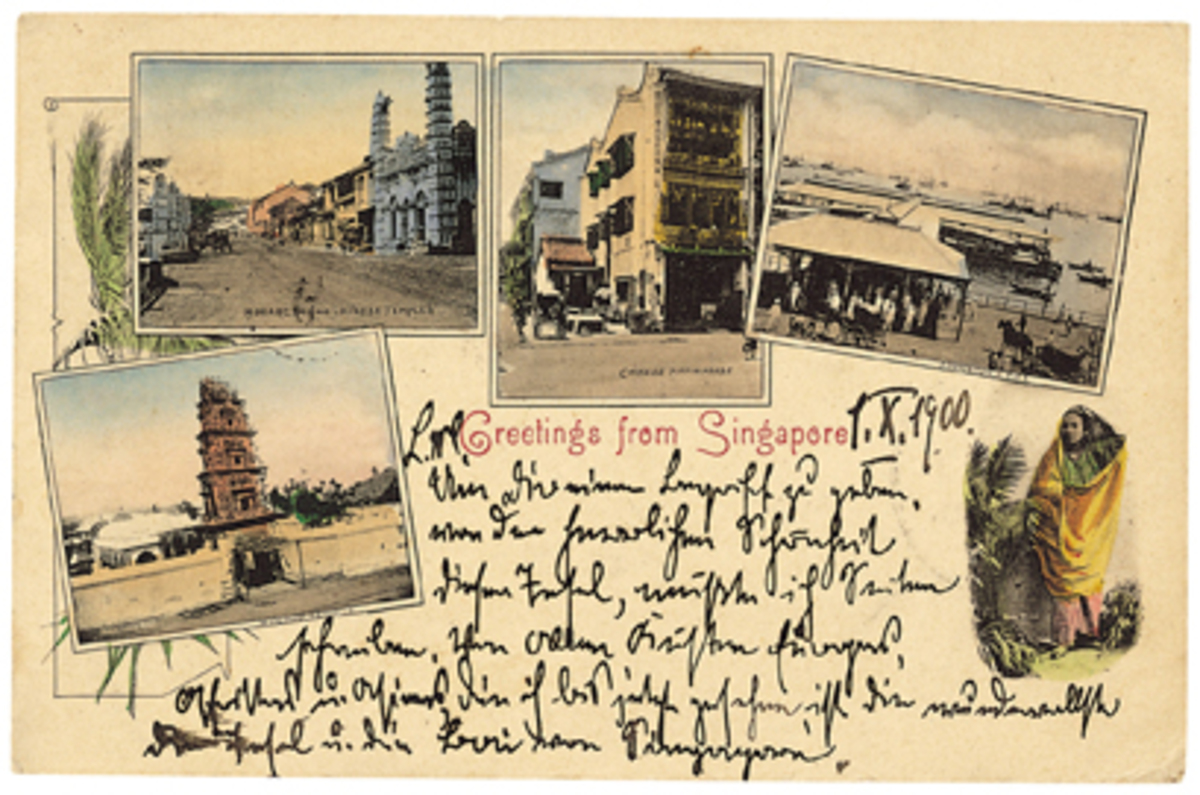 Greetings from Singapore 1.X.1900.
Um dir einen Begriff zu geben,
von der herrlichen Schönheit
dieser Insel, müsste ich Seiten
schreiben. Von allen Küsten Europas,
Afrikas u. Asiens, die ich bis jetzt gesehen, ist die wundervollste
Insel u. die Bai von Singapore.